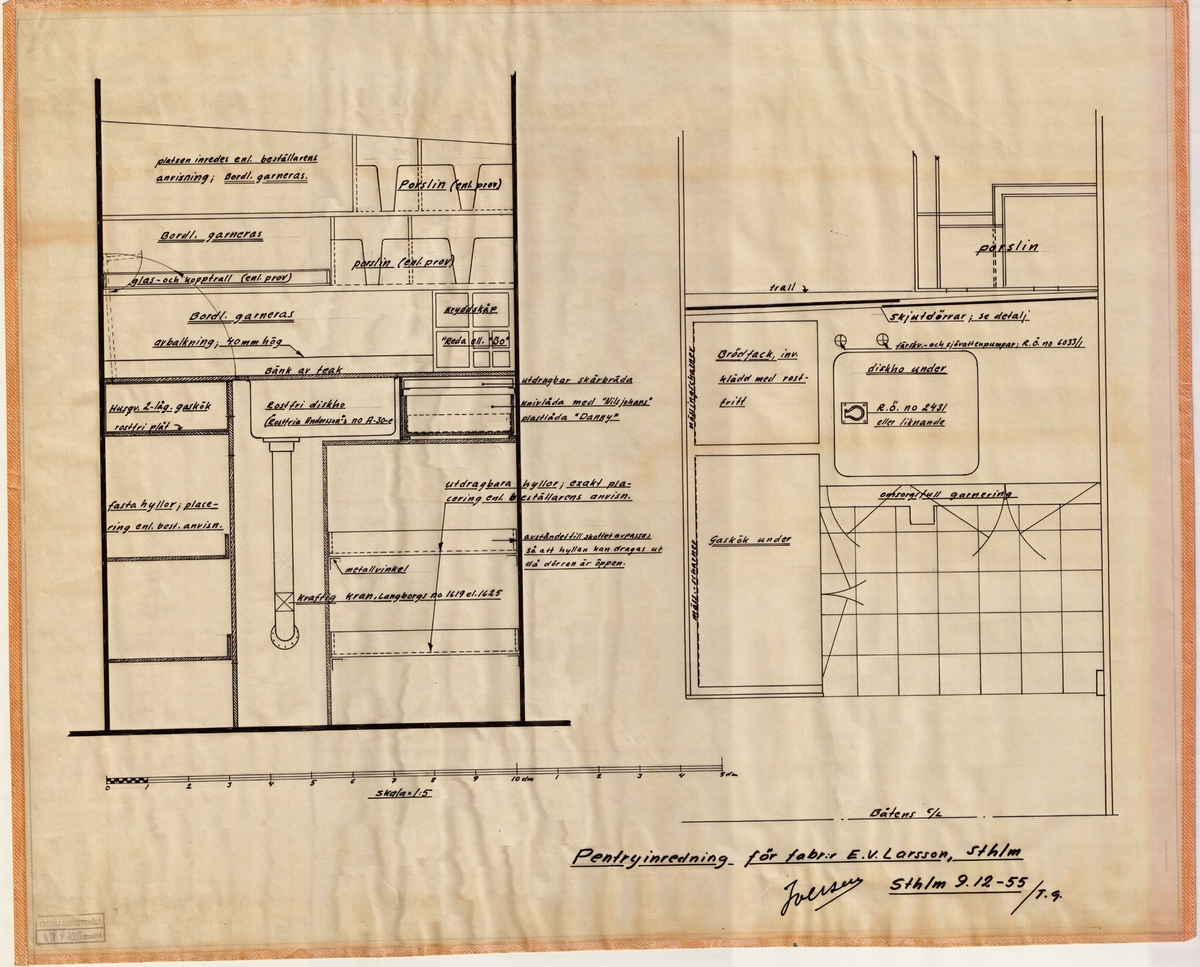 platsen inredes enl. beställarens
anvisning; Bordl. garneras.
Porslin (enl. prov)
Bordl. garneras
porslin (enl. prov)
glas- och kopptrall (enl. prov)
Bordl. garneras
Kryddskåp
avbalkning; 40mm hög
"Reda ell. "Bo"
Bänk av teak
Husqv. 2-låg. gaskök
rostfri plåt
Rostfri diskho
(Rostfria Andersson's no A-30-e
utdragbar skärbräda
knivlåda med "Nilsjohans"
plastlåda "Danny"
utdragbara hyllor; exakt pla-
cering enl. beställarens anvisn.
fasta hyllor; place-
ring enl. best. anvisn.
avståndet till skottet avpassas
så att hyllan kan dragas ut
då dörren är öppen.
metallvinkel
Kraftig kran, Langborgs no 1619 el. 1625
0 1 2 3 4 5 6 7 8 9 10 dm 1 2 3 4 5 dm
Skala=1:5
porslin
trall
Skjutdörrar; se detalj
färskv.- och sjövattenpumpar; R.Ö. no 6033/1
Brödfack, inv.
klädd med rost-
fritt
mässingscharner
diskho under
R.Ö. no 2431
eller liknande
omsorgsfull garnering
Gaskök under
mäss.-scharner
Båtens C/L
Pentryinredning för fabr:r E.V. Larsson, Sthlm
Sthlm 9.12-55
/T.G.